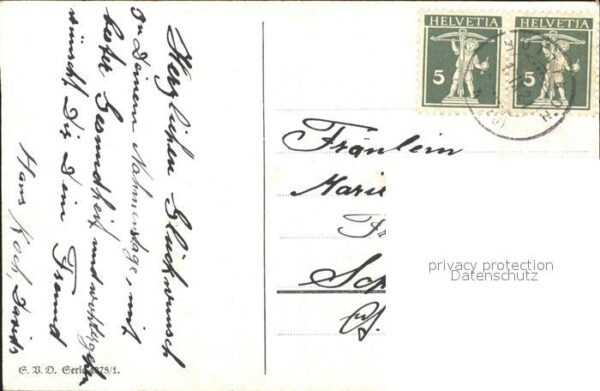 Herzlichen Glückwunsch
zu Deinem Nahmenstage, mit
bester Gesundheit und wohlergehen
wünscht Dir Dein Freund
Hans Koch, Davids
S. V. D. Serie 1278/1.
HELVETIA
5
HELVETIA
5
Fräulein
Marie
Fr
Sch
privacy protection
Datenschutz